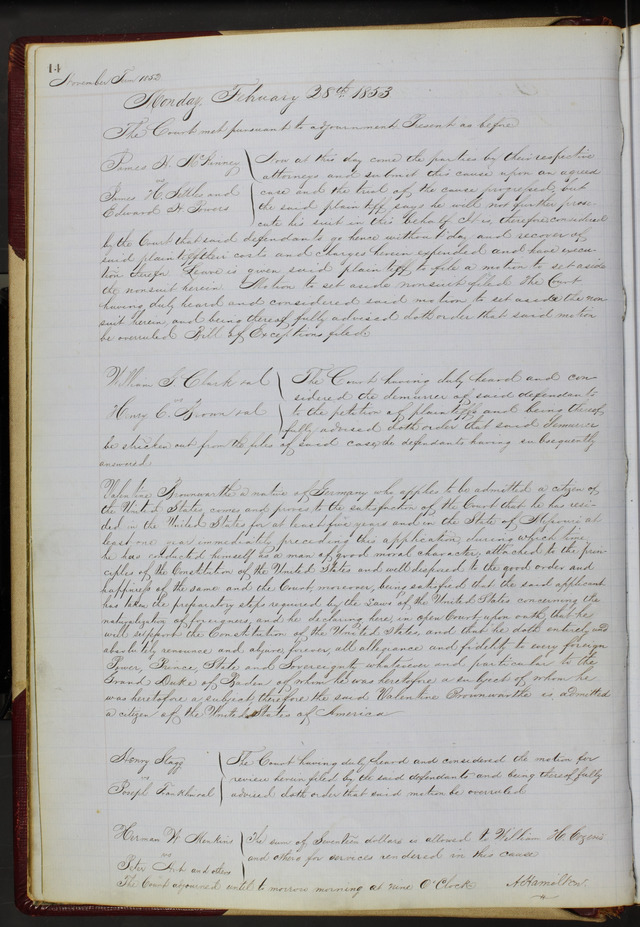 14
November Term 1852
Monday, February 28th 1853
The Court met pursuant to adjournment Present as before
James N. McKinney
vs
James H. and
Edward N. Powers
Now at this day come the parties by their respective
attorneys and submit this cause upon an agreed
case and the trial of the cause progressed, but
the said plaintiff says he will not further prose-
cute his suit in this behalf. It is, therefore considered
by the Court that said defendants go hence without day and recover of
said plaintiff their costs and charges herein expended and have execu-
tion therefor Leave is given said plaintiff to file a motion to set aside
the nonsuit herein Motion to set aside nonsuit filed The Court
having duly heard and considered said motion to set aside the non-
suit herein, and being thereof fully advised doth order that said motion
be overruled Bill of Exceptions filed
William S. Clark et al
vs
Henry C. Brown et al
The Court having duly heard and con-
sidered the demurrer of said defendants
to the petition of plaintiffs and being thereof
fully advised doth order that said demurrer
be stricken out from the files of said case, the defendants having subsequently
answered
Valentine Brownwarthe a native of Germany who applies to be admitted a citizen of
the United States, comes and proves to the satisfaction of the Court that he has resi-
ded in the United States for at least five years and in the State of Missouri at
least one year immediately preceding this application, during which time
he has conducted himself as a man of good moral character, attached to the prin-
ciples of the Constitution of the United States and well disposed to the good order and
happiness of the same and the Court, moreover, being satisfied that the said applicant
has taken the preparatory steps required by the Laws of the United States concerning the
naturalization of foreigners, and he declaring here, in open Court, upon oath, that he
will support the Constitution of the United States, and that he doth entirely and
absolutely renounce and abjure forever, all allegiance and fidelity to every foreign
Power, Prince, State and Sovereignty whatsoever and particular to the
Grand Duke of Baden of whom he was heretofore a subject of whom he
was heretofore a subject therefore the said Valentine Brownwarthe is admitted
a citizen of the United States of America
Henry Stagg
vs
Joseph
The Court having duly heard and considered the motion for
review herein filed by the said defendants and being thereof fully
advised doth order that said motion be overruled
Herman W. Henkins
vs
Peter and others
The sum of Seventeen dollars is allowed to William H. Cozens
and others for services rendered in this cause
The Court adjourned until to morrow morning at nine O'Clock A. Hamilton